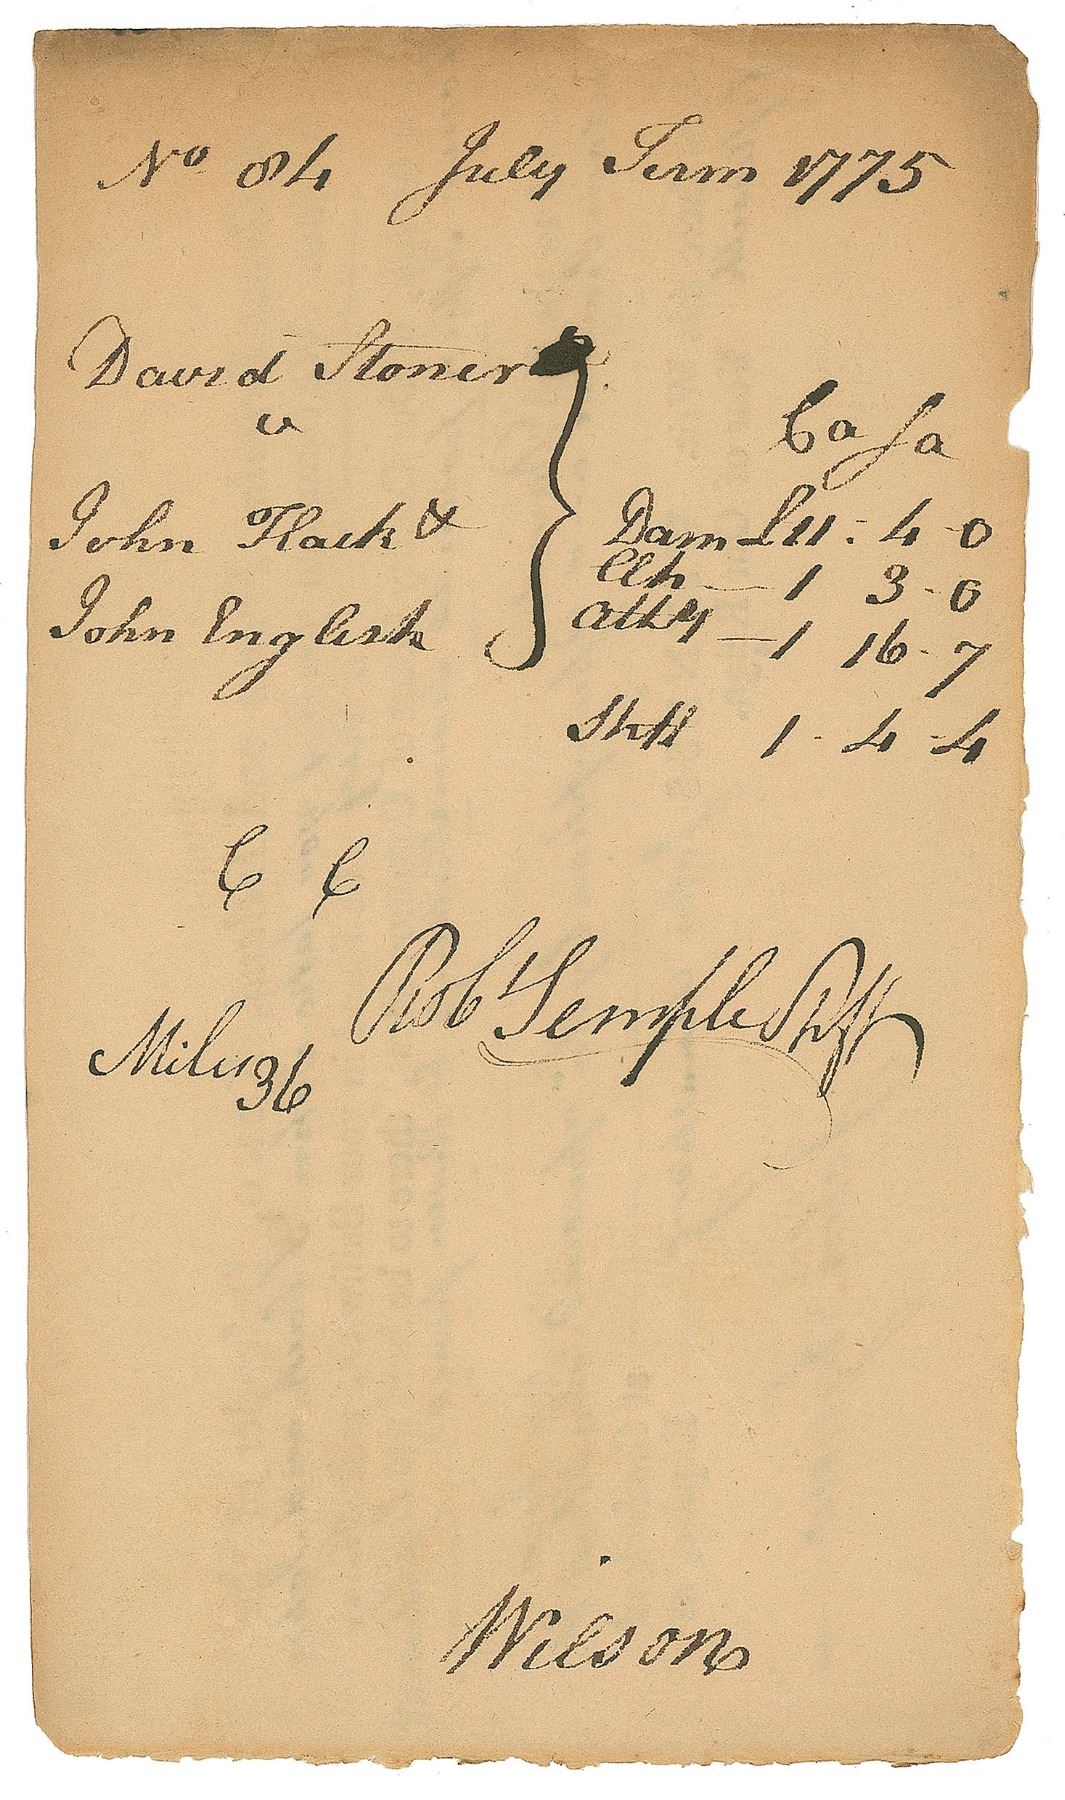 No 84 July Term 1775
David Stoner
v
John Flack &
John English
Ca Sa
Dam £11 . 4 - 0
Clk — 1 3 - 0
Atty — 1 16 - 7
Shff 1 - 4 - 4
C C
Robt Semple Shff
Miles 36
Wilson